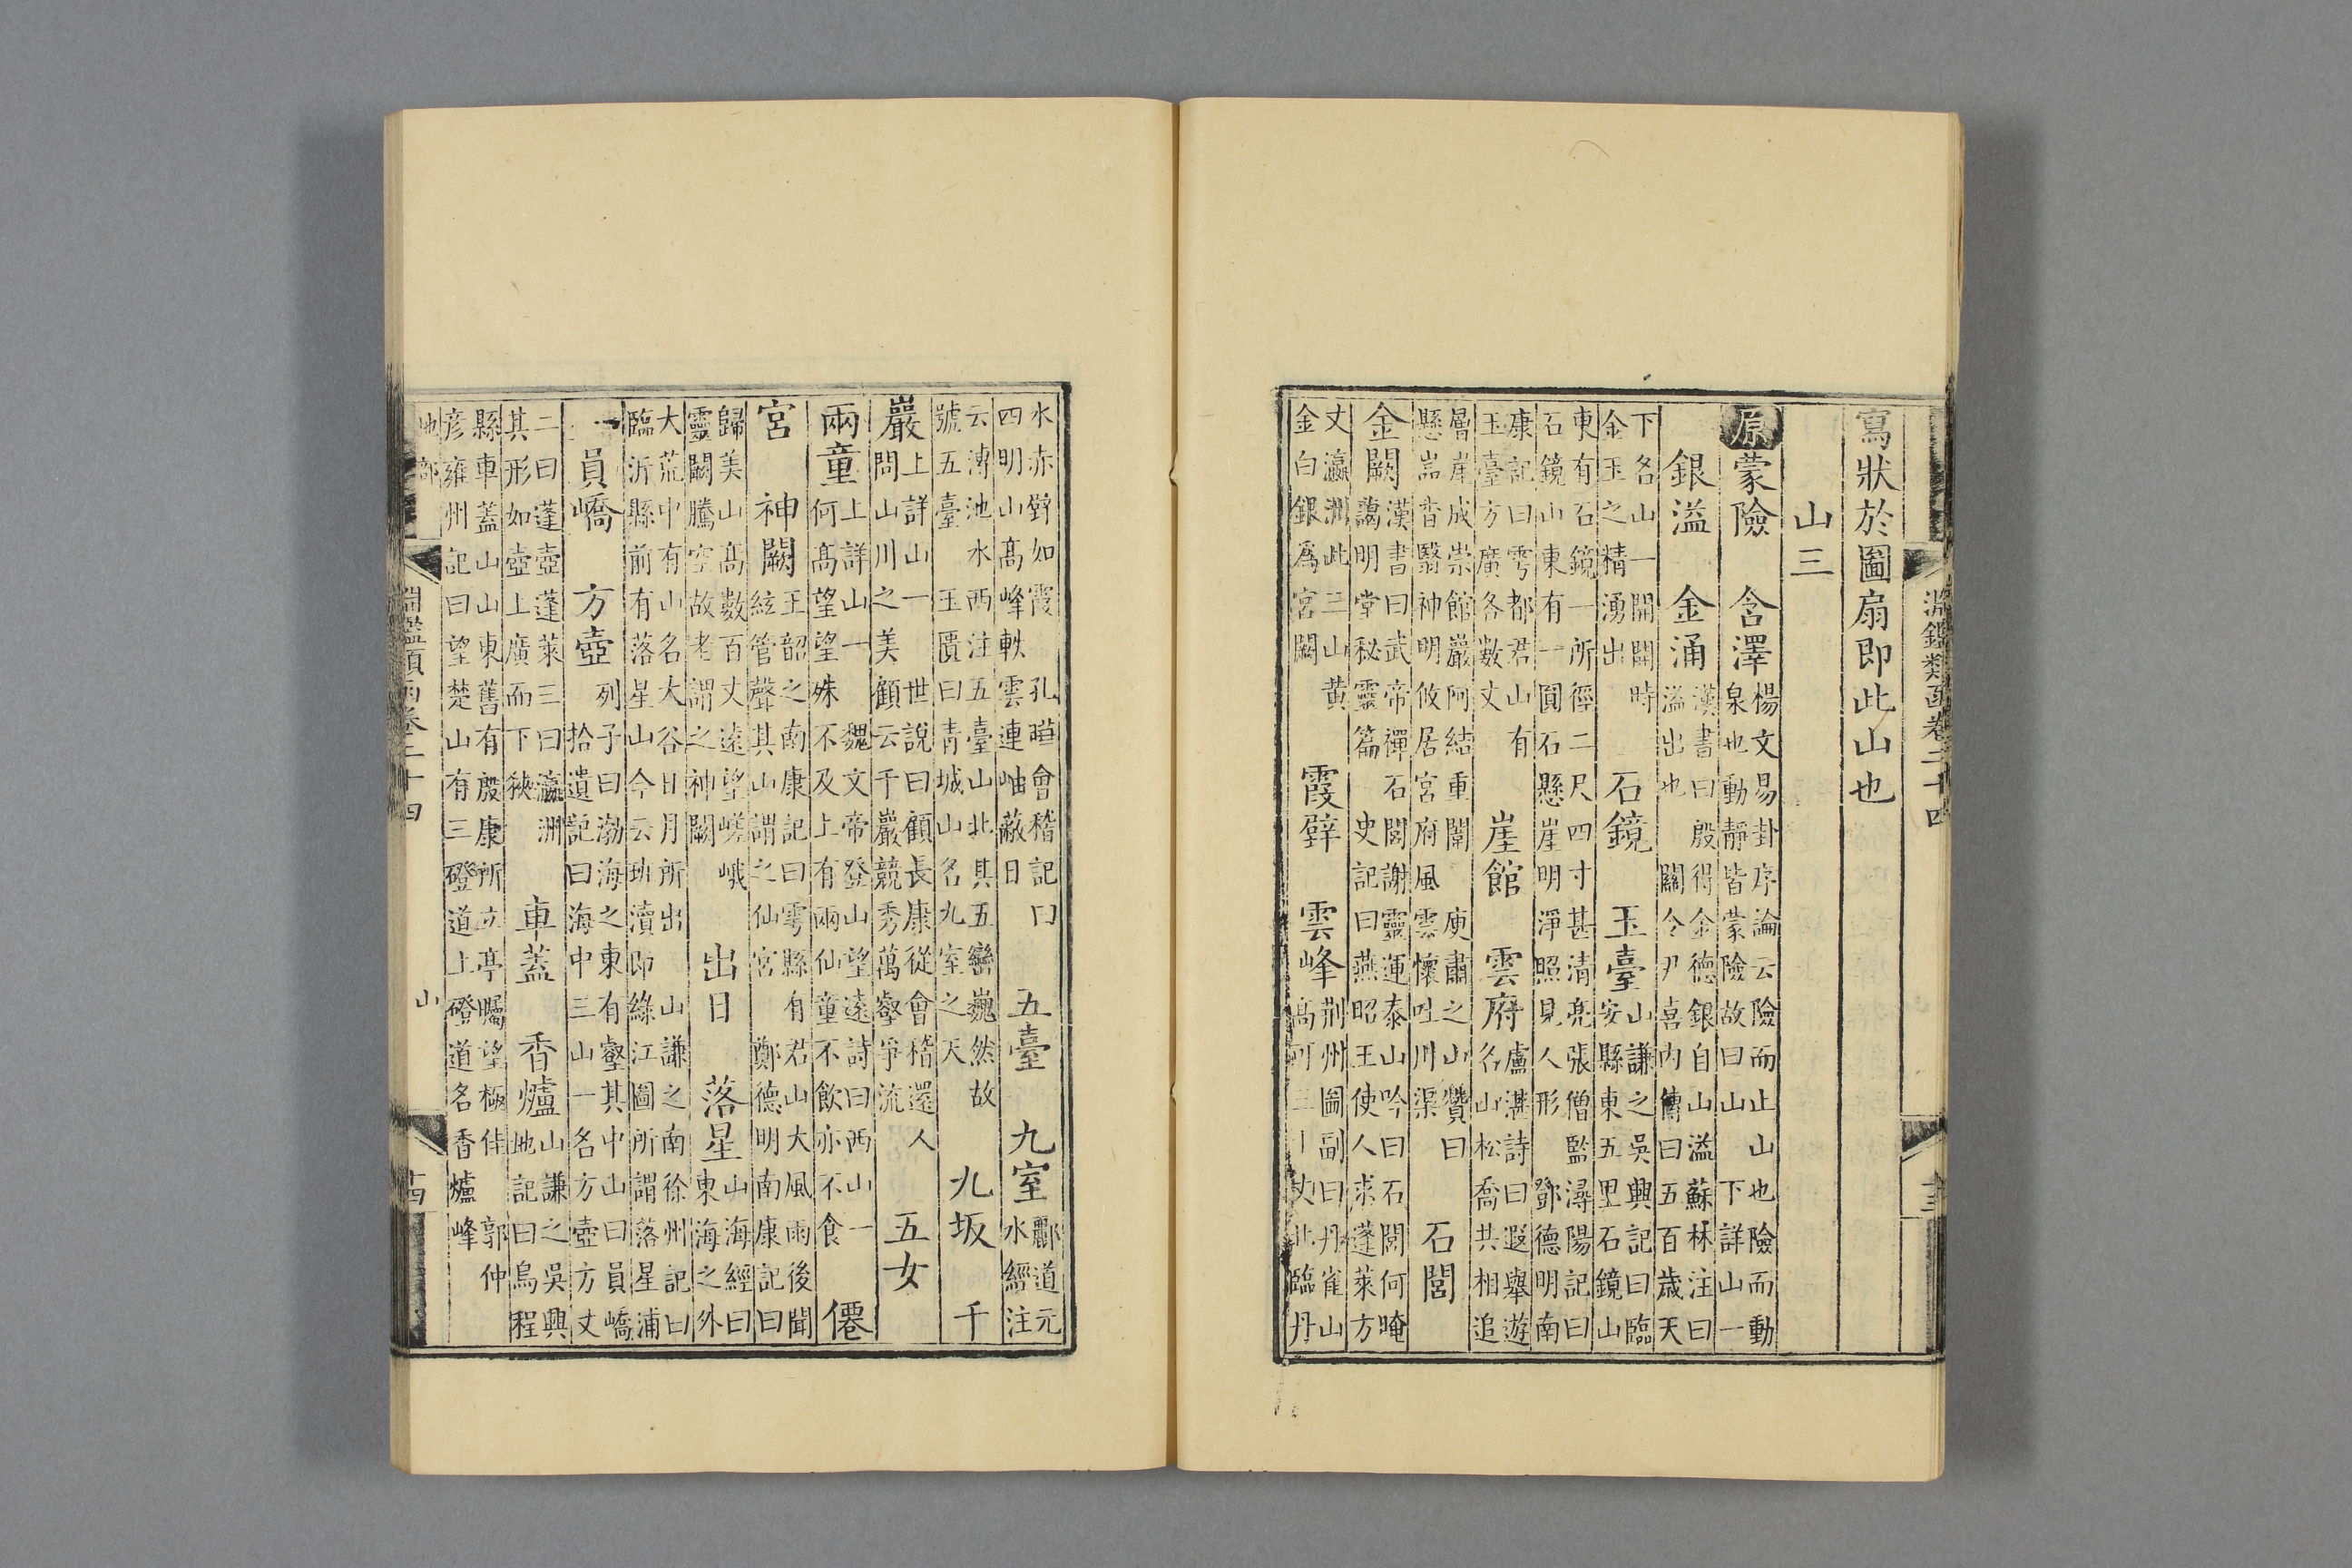 淵鑑類函卷二十四 十三
寫狀於圖扇即此山也
山三
原蒙險 含澤 楊文易卦序論云險而止山也險而動泉也動靜皆蒙險故曰山 下詳山一
銀溢 金涌 漢書曰殷得金德銀自山溢蘇林注曰溢出也 關令尹喜內傳曰五百歲天
下名山一開開時金玉之精湧出 石鏡 玉臺 山謙之吳興記曰臨安縣東五里石鏡山
東有石鏡一所徑二尺四寸甚清亮張僧監潯陽記曰石鏡山東有一圓石懸崖明淨照見人形 鄧德明南
康記曰雩都君山有玉臺方廣各數丈 崖館 雲府 盧諶詩曰遐舉遊名山松喬共相追
層崖成崇館巖阿結重闈 庾肅之山贊曰懸嵓杳翳神明攸居宮府風雲懷吐川渠 石閭
金闕 漢書曰武帝禪石閭謝靈運泰山吟曰石閭何晻藹明堂秘靈篇 史記曰燕昭王使人求蓬萊方
丈瀛洲此三山黃金白銀爲宮闕 霞壁 雲峰 荆州圖副曰丹雀山高可三十丈北臨丹
水赤壁如霞 孔曄會稽記曰四明山高峰軼雲連岫蔽日 五臺 九室 酈道元水經注
云溥池水西注五臺山北其五巒巍然故號五臺 玉匱曰青城山名九室之天 九坂 千
巖 上詳山一 世說曰顧長康從會稽還人問山川之美顧云千巖競秀萬壑爭流 五女
兩童 上詳山一 魏文帝登山望遠詩曰西山一何高望望殊不及上有兩仙童不飲亦不食 僊
宮 神闕 王韶之南康記曰雩縣有君山大風雨後聞絃管聲其山謂之仙宮 鄭德明南康記曰
歸美山山高數百丈遠望嵯峨靈闕騰空故老謂之神闕 出日 落星 山海經曰東海之外
大荒中有山名大谷日月所出 山謙之南徐州記曰臨沂縣前有落星山今云班瀆即緣江圖所謂落星浦
一員嶠 方壺 列子曰渤海之東有壑其中山曰員嶠拾遺記曰海中三山一名方壺方丈
二曰蓬壺蓬萊三曰瀛洲其形如壺上廣而下狹 車蓋 香爐 山謙之吳興地記曰烏程
縣車蓋山山東舊有殷康所立亭矚望極佳 郭仲彥雍州記曰望楚山有三磴道上磴道名香爐峰
地部 淵鑑類函卷二十四 山 十四